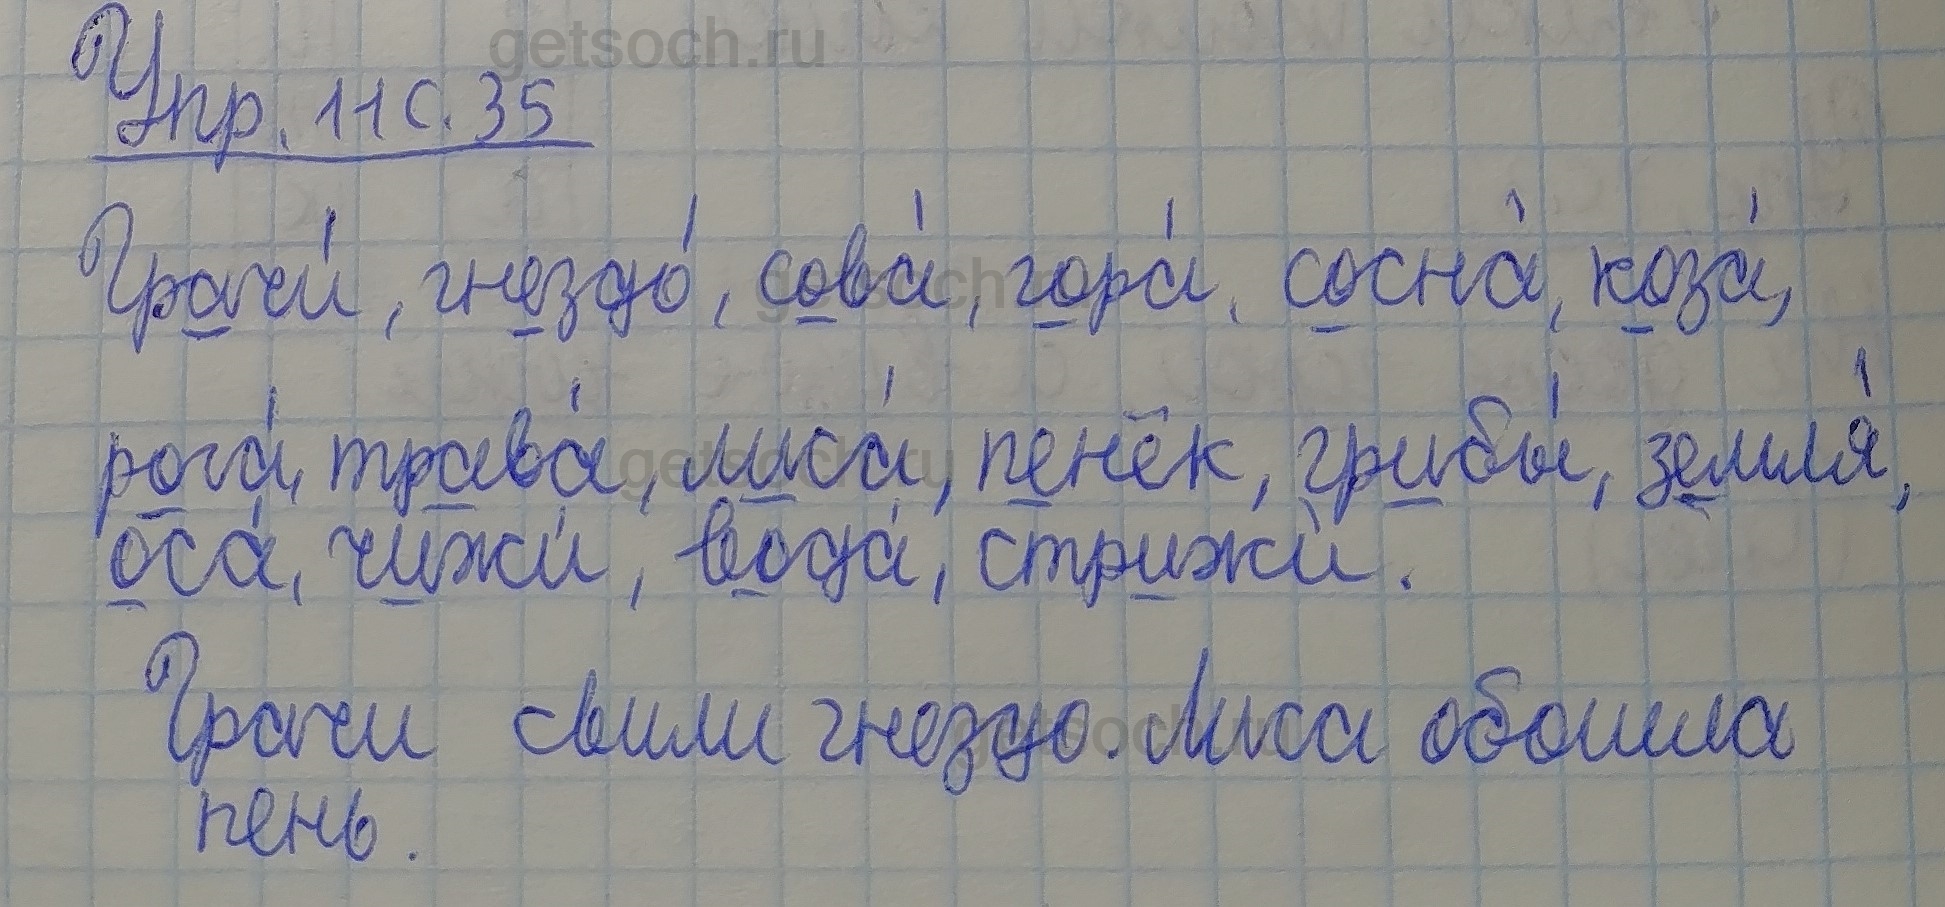 getsoch.ru
Упр. 11 с. 35
Грачи́, гнездо́, сова́, гора́, сосна́, коза́,
getsoch.ru
рога́, трава́, лиса́, пенёк, грибы́, земля́,
getsoch.ru
оса́, чижи́, вода́, стрижи́.
Грачи свили гнездо. Лиса обошла
getsoch.ru
пень.